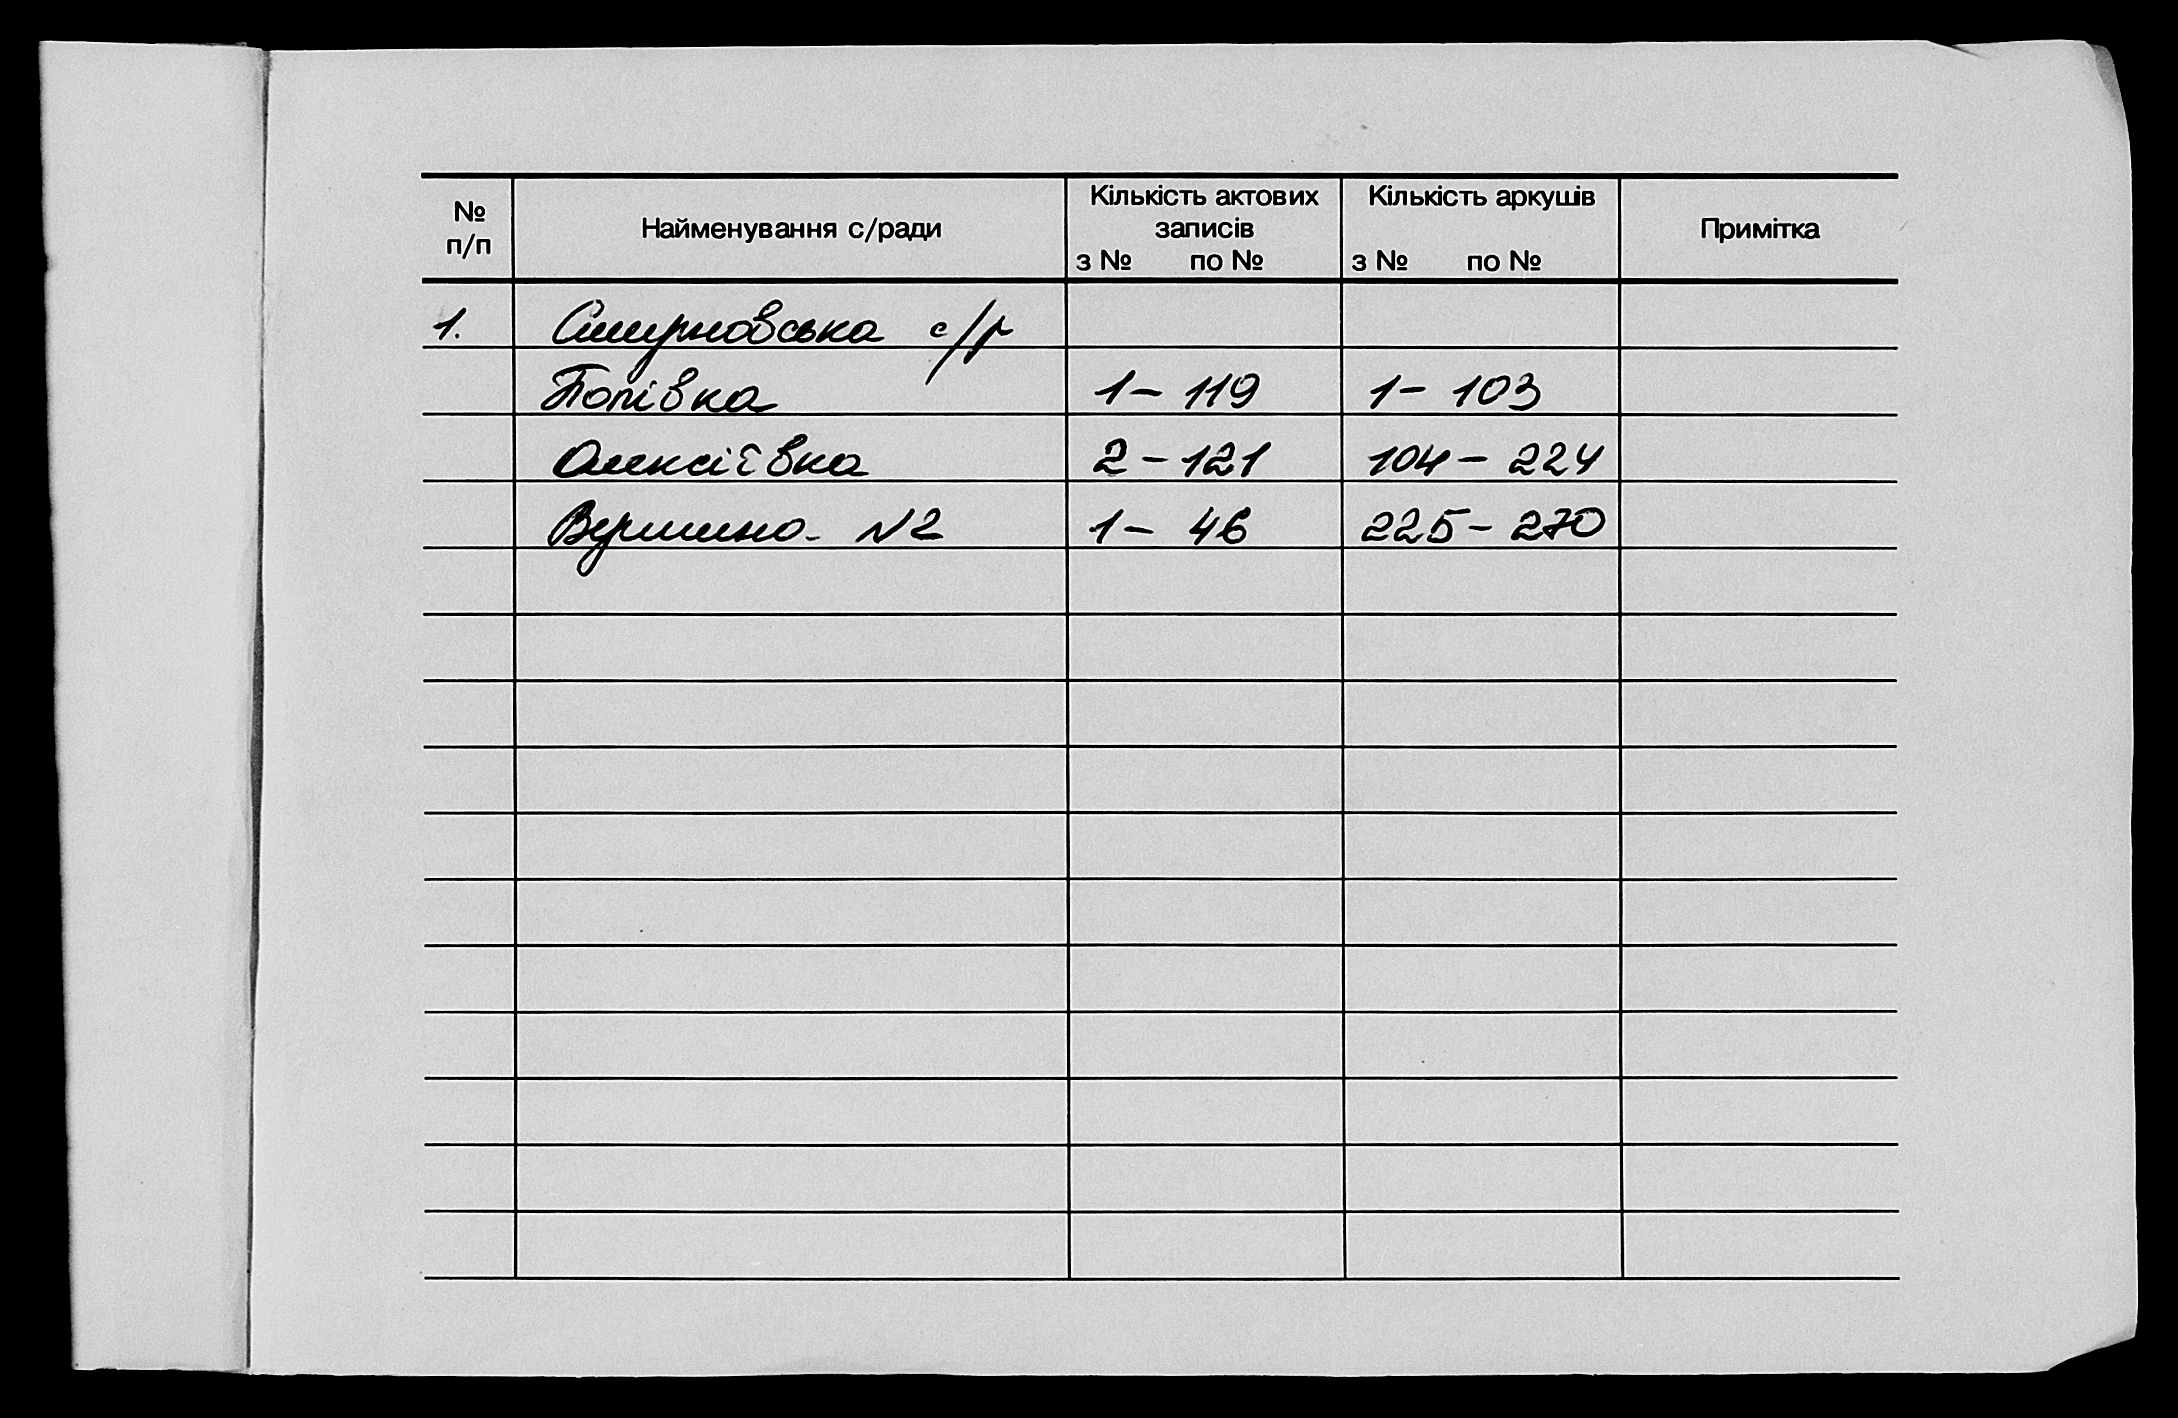 № п/п Найменування с/ради Кількість актових записів з № по № Кількість аркушів з № по № Примітка
1. Смирновська с/р
Попівка 1 - 119 1 - 103
Олексіївка 2 - 121 104 - 224
Вершино - N2 1 - 46 225 - 270